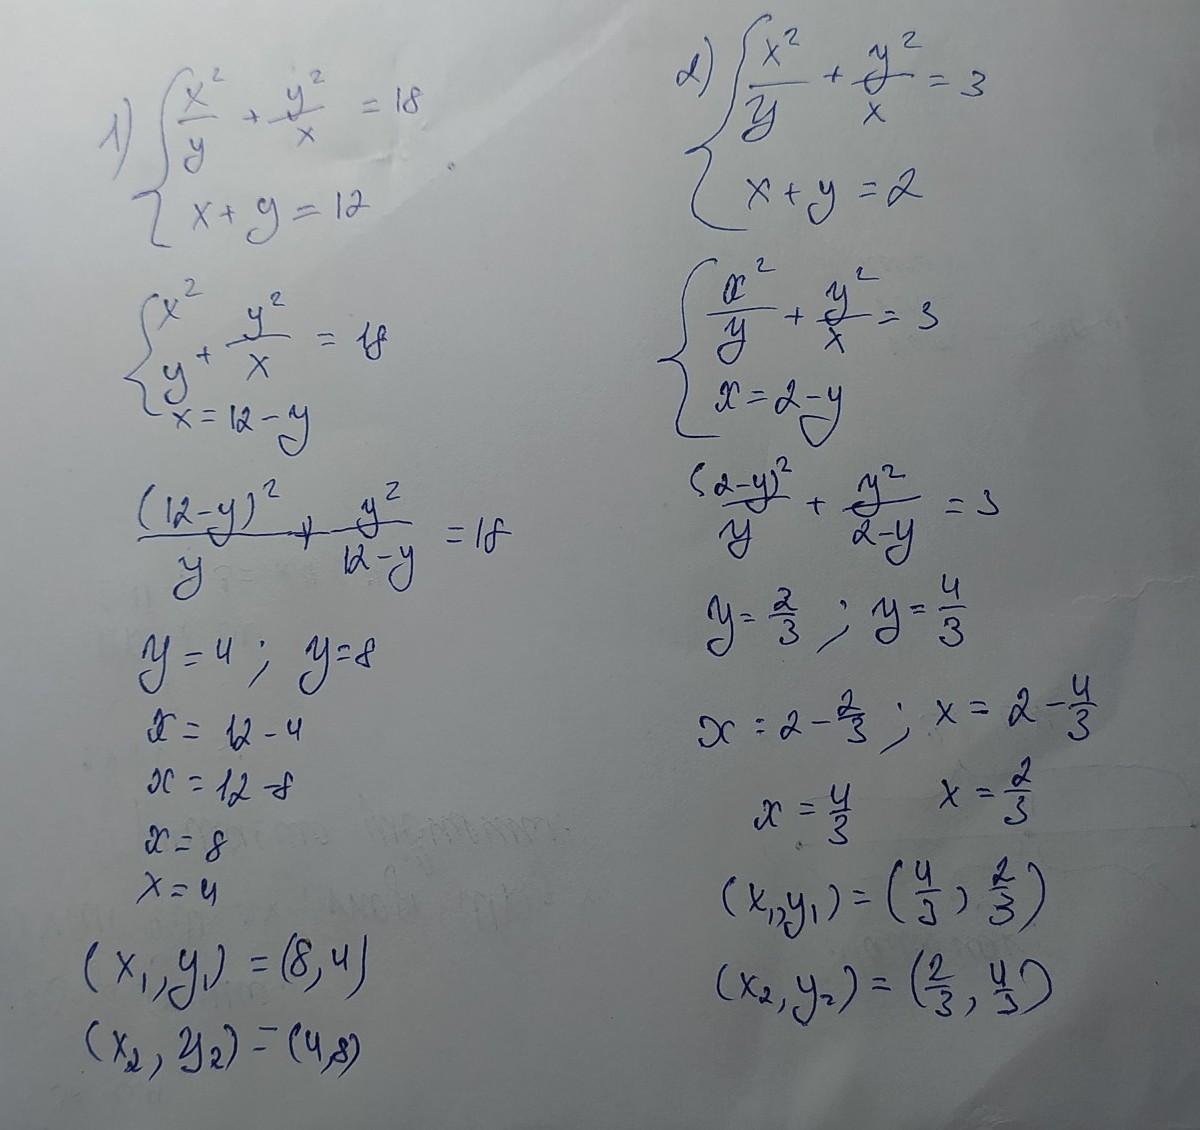 1) { x²/y + y²/x = 18
x + y = 12
{ x²
y + y²/x = 18
x = 12 - y
(12-y)²/y + y²/12-y = 18
y = 4 ; y = 8
x = 12 - 4
x = 12 - 8
x = 8
x = 4
(x₁, y₁) = (8, 4)
(x₂, y₂) = (4, 8)
2) { x²/y + y²/x = 3
x + y = 2
{ x²/y + y²/x = 3
x = 2 - y
(2-y)²/y + y²/2-y = 3
y = 2/3 ; y = 4/3
x = 2 - 2/3 ; x = 2 - 4/3
x = 4/3 x = 2/3
(x₁, y₁) = (4/3, 2/3)
(x₂, y₂) = (2/3, 4/3)